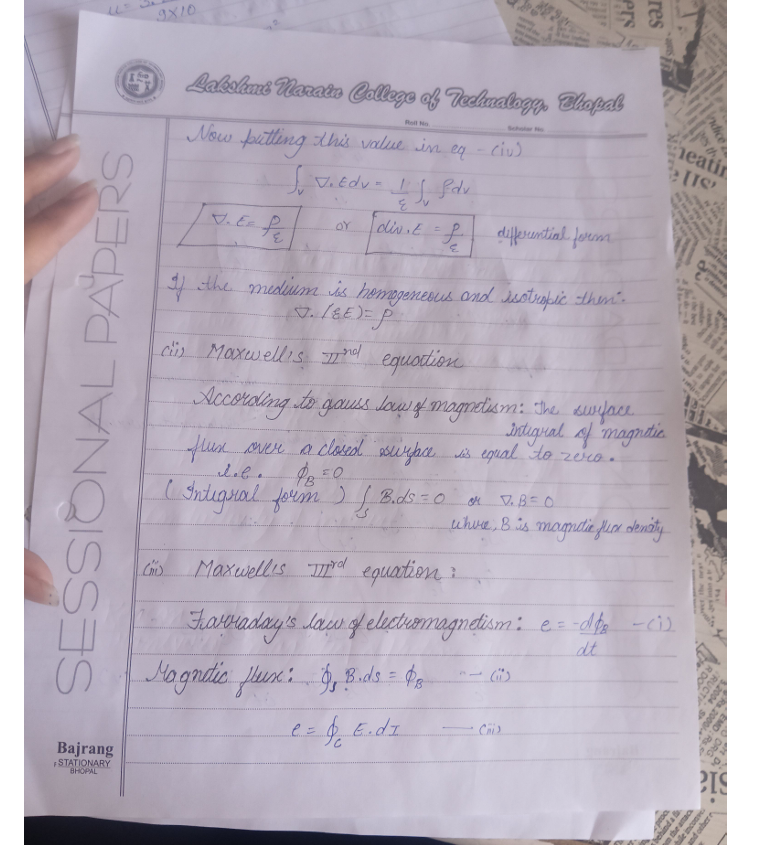 9x10
Lakshmi Narain College of Technology, Bhopal
Roll No.
Scholar No.
SESSIONAL PAPERS
Now putting this value in eq - (iv)
∫v ∇.Edv = 1/ε ∫v ρdv
∇.E = ρ/ε or div.E = ρ/ε differential form
If the medium is homogeneous and isotropic then-
∇.(εE)=ρ
(ii) Maxwell's IInd equation
According to gauss law of magnetism: The surface
integral of magnetic
flux over a closed surface is equal to zero.
i.e. ϕB=0
(Integral form) ∫s B.ds=0 or ∇.B=0
where, B is magnetic flux density
(iii) Maxwell's IIIrd equation:
Farraday's law of electromagnetism: e = -dϕB/dt - (i)
Magnetic flux: ∮s B.ds = ϕB - (ii)
e = ∮c E.dI — (iii)
Bajrang
STATIONARY
BHOPAL